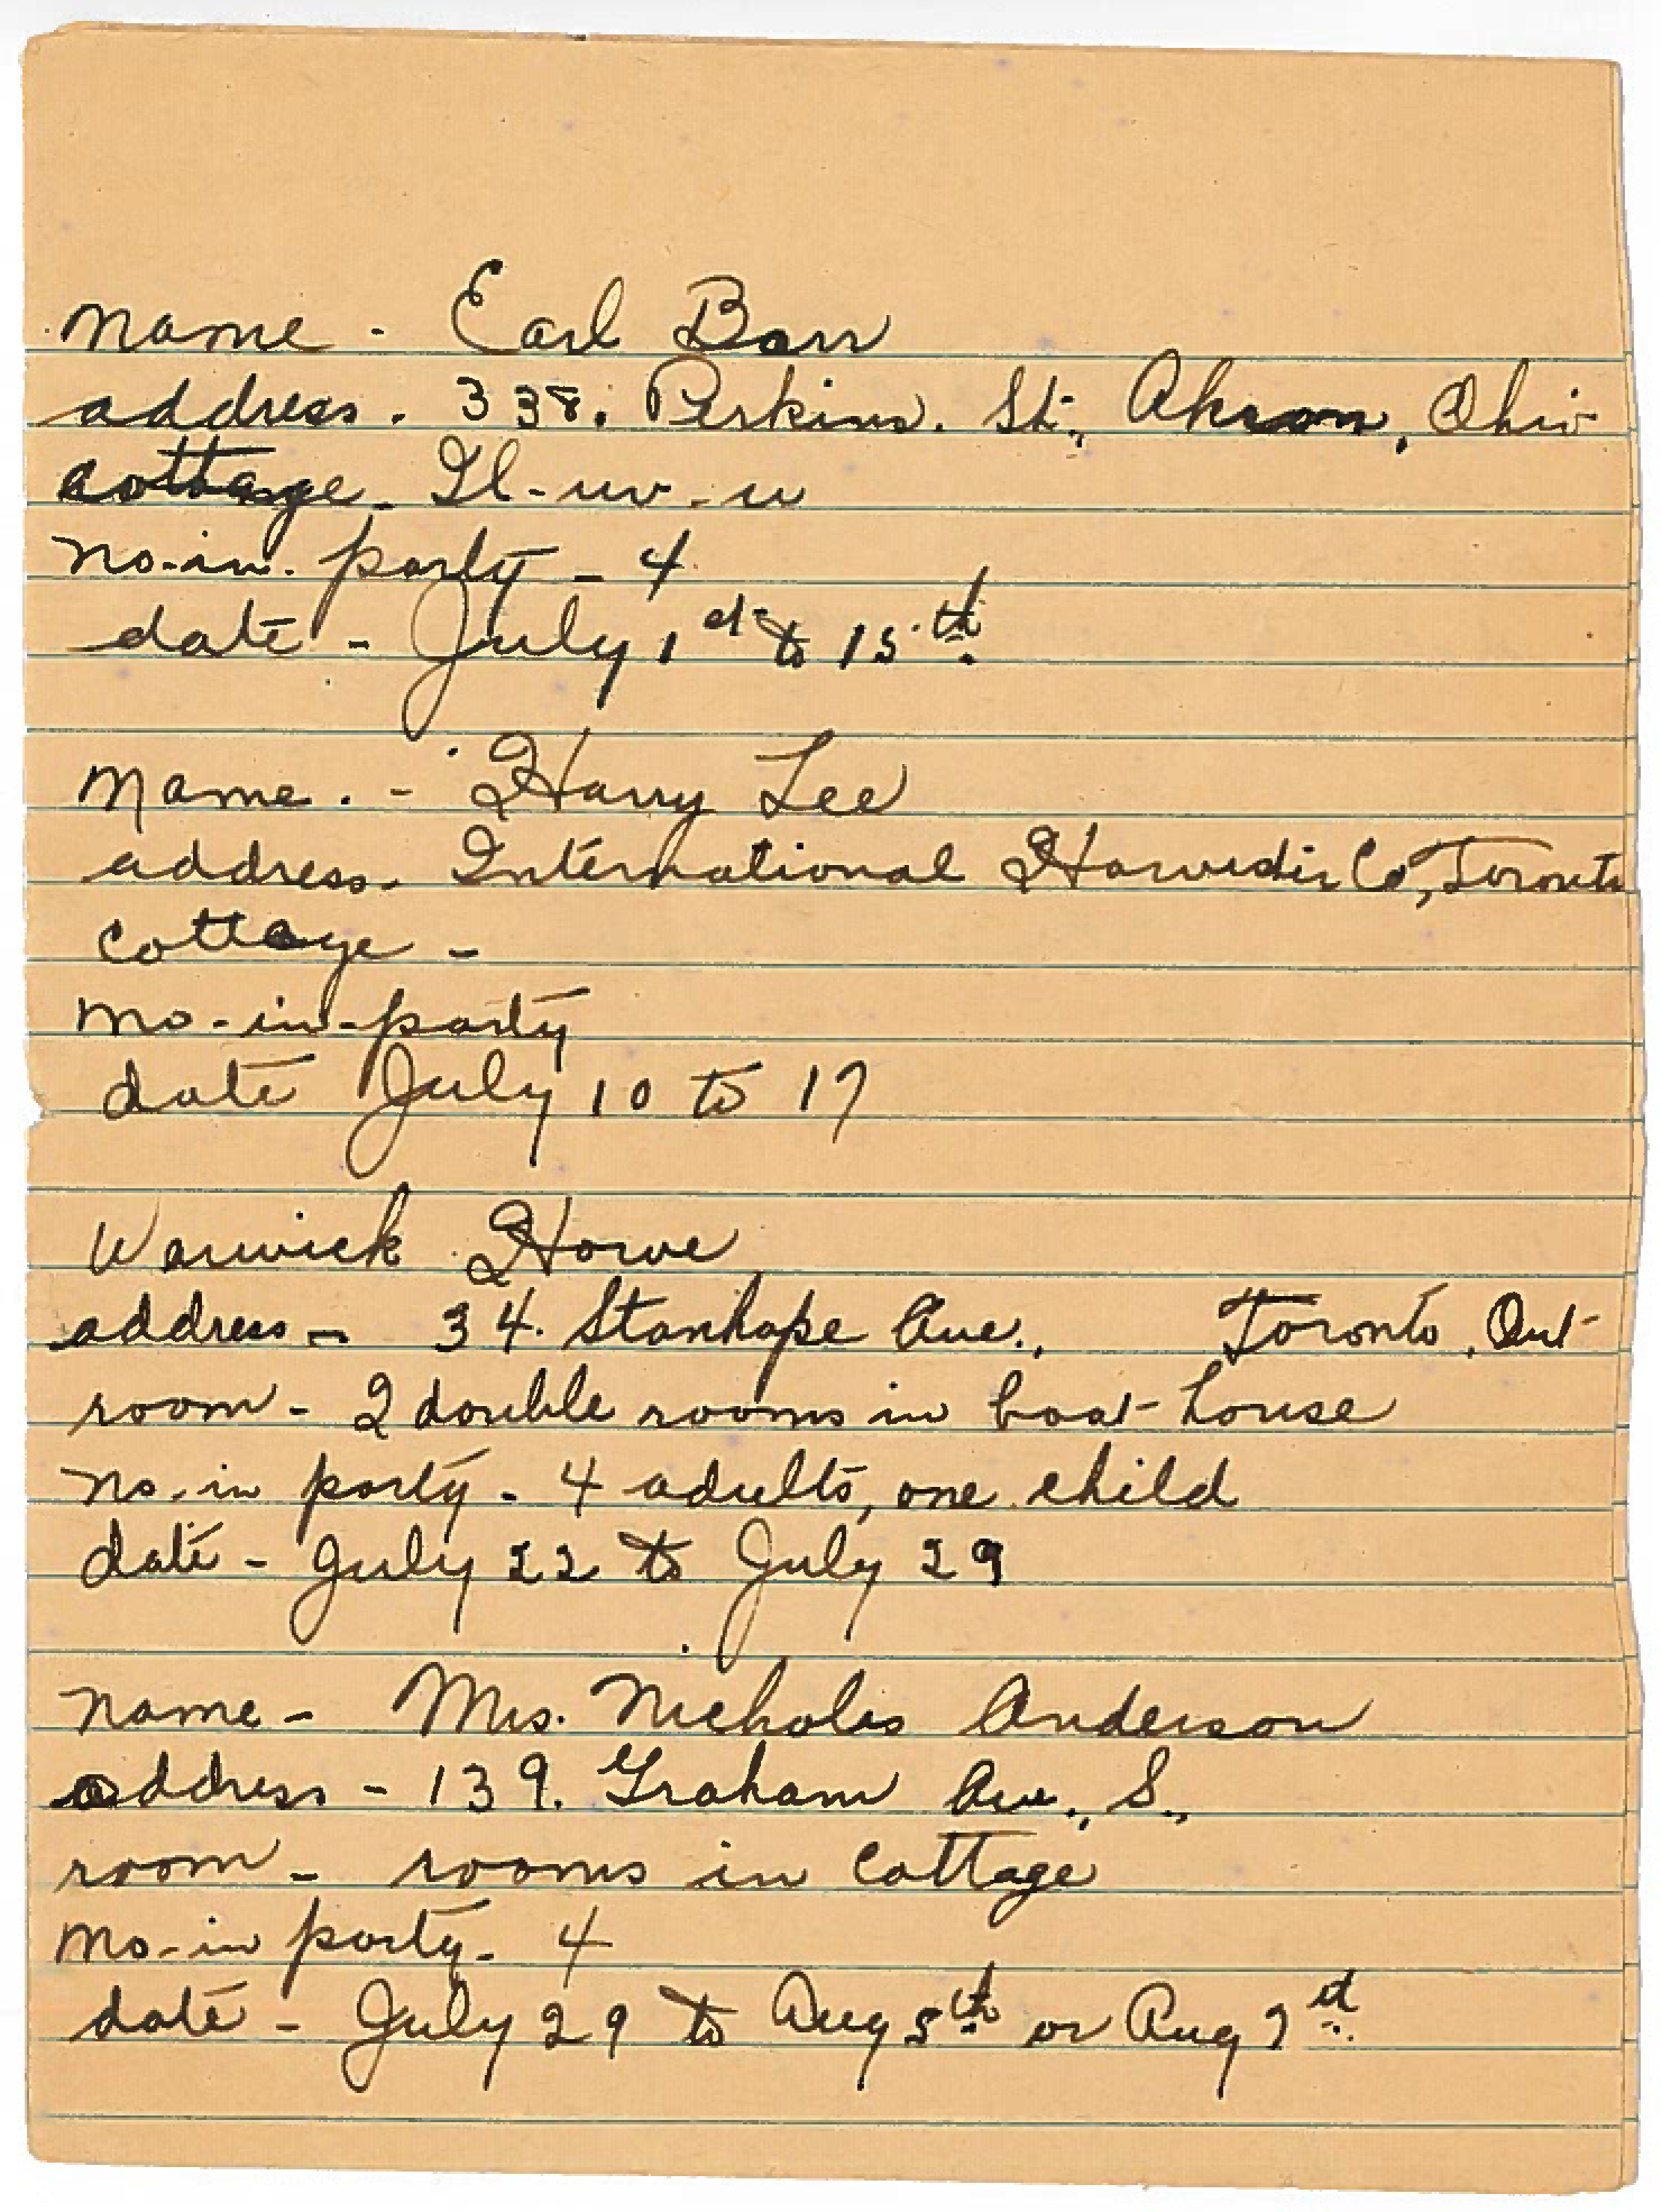 name - Earl Barr
address. 338. Perkins. St., Akron, Ohio
cottage - Il-uv-u
no-in. party - 4
date - July 1st to 15th.
name. - Harry Lee
address. International Harvester Co, Toronto
cottage -
no-in-party
date July 10 to 17
Warwick Howe
address - 34. Stanhope Ave., Toronto, Ont
room - 2 double rooms in boat-house
no. in party - 4 adults, one child
date - July 22 to July 29
name - Mrs. Nicholas Anderson
address - 139. Graham Ave., S.,
room - rooms in cottage
no-in party - 4
date - July 29 to Aug 5th or Aug 7th